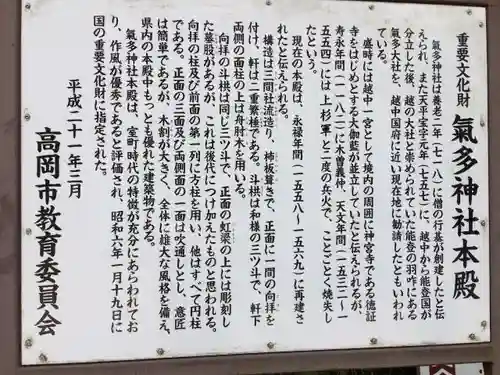 重要文化財 氣多神社本殿
氣多神社は養老二年(七一八)に僧の行基が創建したと伝
えられ、また天平宝字元年(七五七)に、越中から能登国が
分立した後、越の大社と崇められていた能登の羽咋にある
氣多大社を、越中国府に近い現在地に勧請したともいわれ
ている。
盛時には越中一宮として境内の周囲に神宮寺である徳証
寺をはじめとする大伽藍が並立していたと伝えられるが、
寿永年間(一一八二)に木曽義仲、天文年間(一五三二～一
五五四)には上杉軍と二度の兵火で、ことごとく焼失し
たという。
現在の本殿は、永禄年間(一五五八～一五六九)に再建さ
れたと伝えられる。
構造は三間社流造り、杮板葺きで、正面に一間の向拝を
付け、軒は二重繁垂である。斗栱は和様の三ツ斗で、軒下
両側の面柱の上は舟肘木を用いる。
向拝の斗栱は同じ三ツ斗で、正面の虹梁の上には彫刻し
た蟇股があるが、これは後代につけ加えたものと思われる。
向拝の柱及び前面の第一列に方柱を用い、他はすべて円柱
である。正面の三面及び両側面の一面は吹通しとし、意匠
は簡単であるが、木割が大きく、全体に雄大な風格を備え、
県内の本殿中もっとも優れた建築物である。
氣多神社本殿は、室町時代の特徴が充分にあらわれてお
り、作風が優秀であると評価され、昭和六年一月十九日に
国の重要文化財に指定された。
平成二十一年三月
高岡市教育委員会